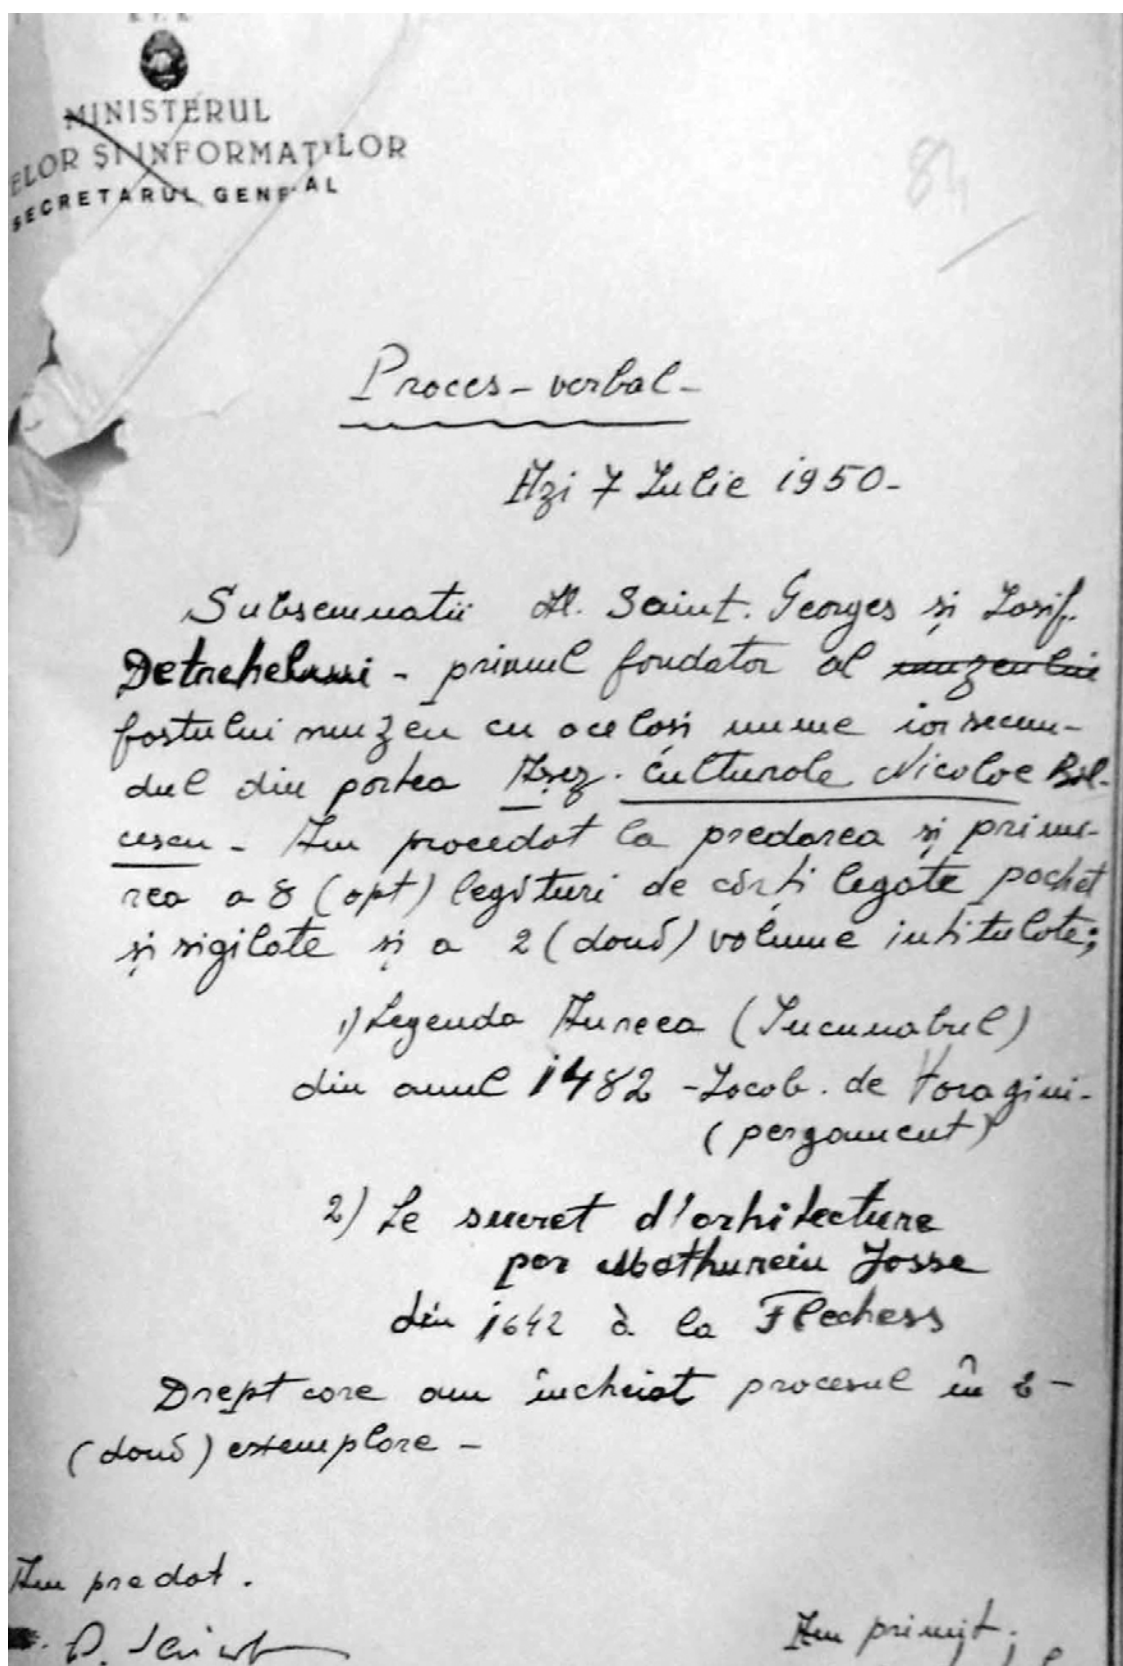 R.P.R.
MINISTERUL
ELOR ȘI INFORMAȚIILOR
SECRETARUL GENERAL
84
Proces-verbal-
Azi 7 Iulie 1950-
Subsemnatii Al. Saint. Georges și Iosif.
- primul fondator al muzeului
fostului muzeu cu acelasi nume iar secun-
dul din partea Așez. Culturale Nicolae Băl-
cescu - Am procedat la predarea și primi-
rea a 8 (opt) legături de cărți legate pachet
și sigilate și a 2 (două) volume intitulate;
1) Legenda Aureea (Incunabul)
din anul 1482 - Iacob. de Voragini-
(pergament)
2) Le sucret d'arhitecture
par Mathurein Josse
din 1642 à la Flechess
Drept care am încheiat procesul în 2-
(două) exemplare -
Am predat.
Am primit.